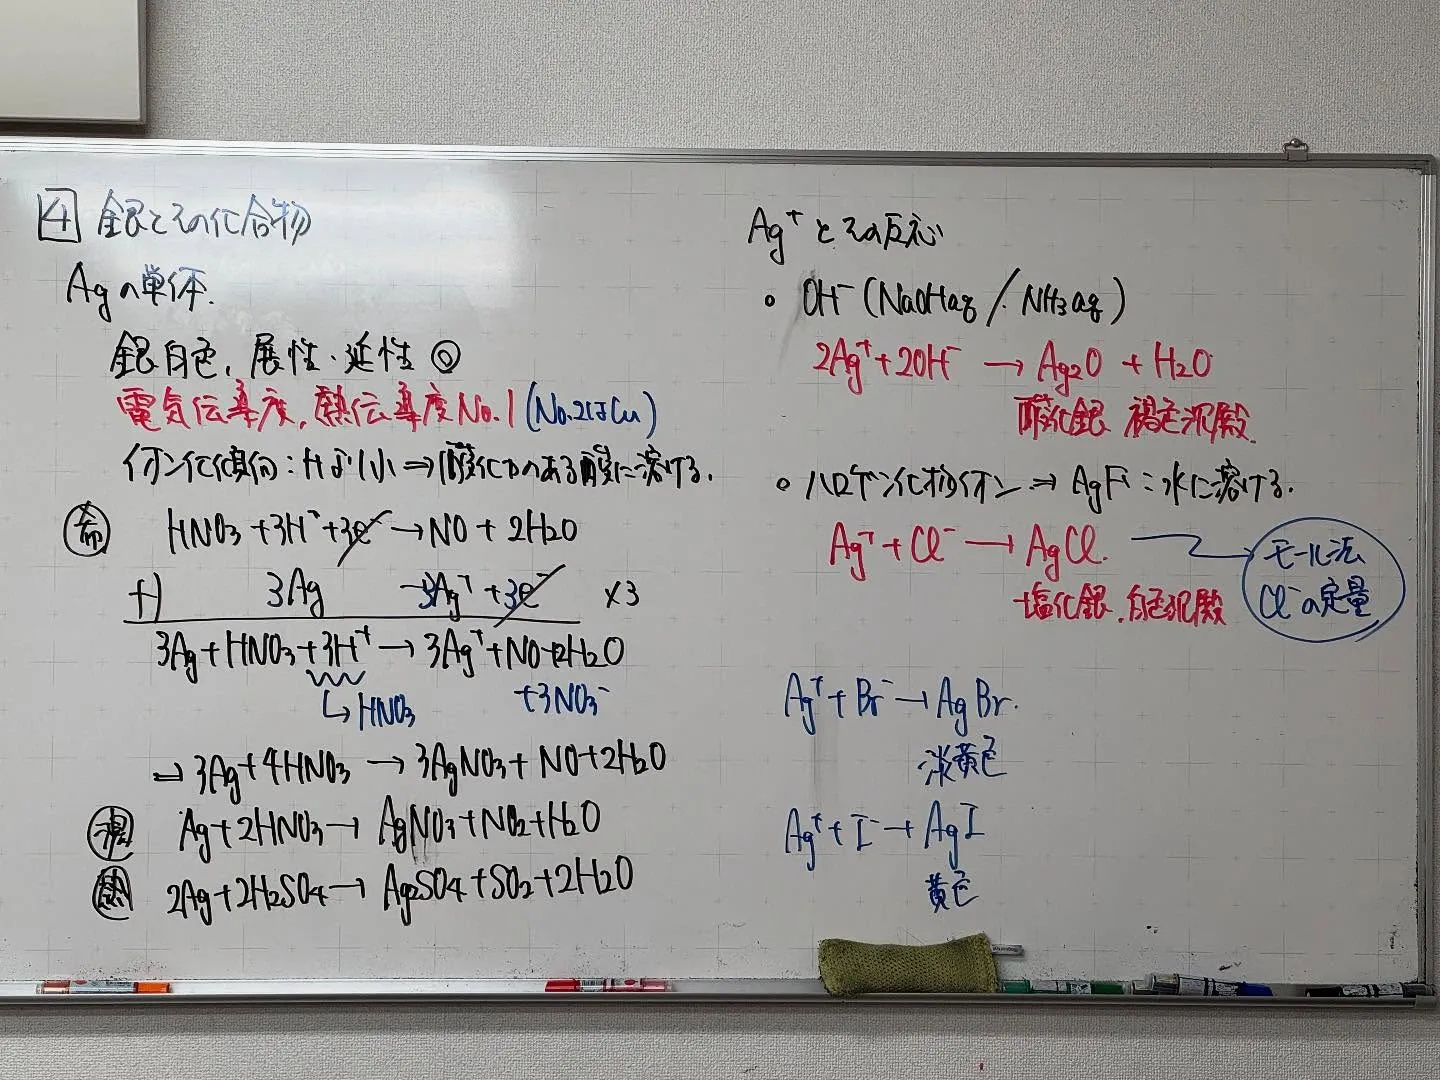 4 銀とその化合物
Agの単体.
銀白色, 展性・延性 ◎
電気伝導度, 熱伝導度No.1 (No.2はCu)
イオン化傾向: Hより小 ⇒ 酸化力のある酸に溶ける.
希 HNO3 + 3H+ + 3e- → NO + 2H2O
+) 3Ag → 3Ag+ + 3e- ×3
3Ag + HNO3 + 3H+ → 3Ag+ + NO + 2H2O
↳ HNO3 +3NO3-
⇒ 3Ag + 4HNO3 → 3AgNO3 + NO + 2H2O
濃 Ag + 2HNO3 → AgNO3 + NO2 + H2O
熱 2Ag + 2H2SO4 → Ag2SO4 + SO2 + 2H2O
Ag+ とその反応
○ OH- (NaOHaq / NH3aq)
2Ag+ + 2OH- → Ag2O + H2O
酸化銀 褐色沈殿.
○ ハロゲン化物イオン ⇒ AgF: 水に溶ける.
Ag+ + Cl- → AgCl.
塩化銀. 白色沈殿
モール法
Cl-の定量
Ag+ + Br- → AgBr.
淡黄色
Ag+ + I- → AgI
黄色